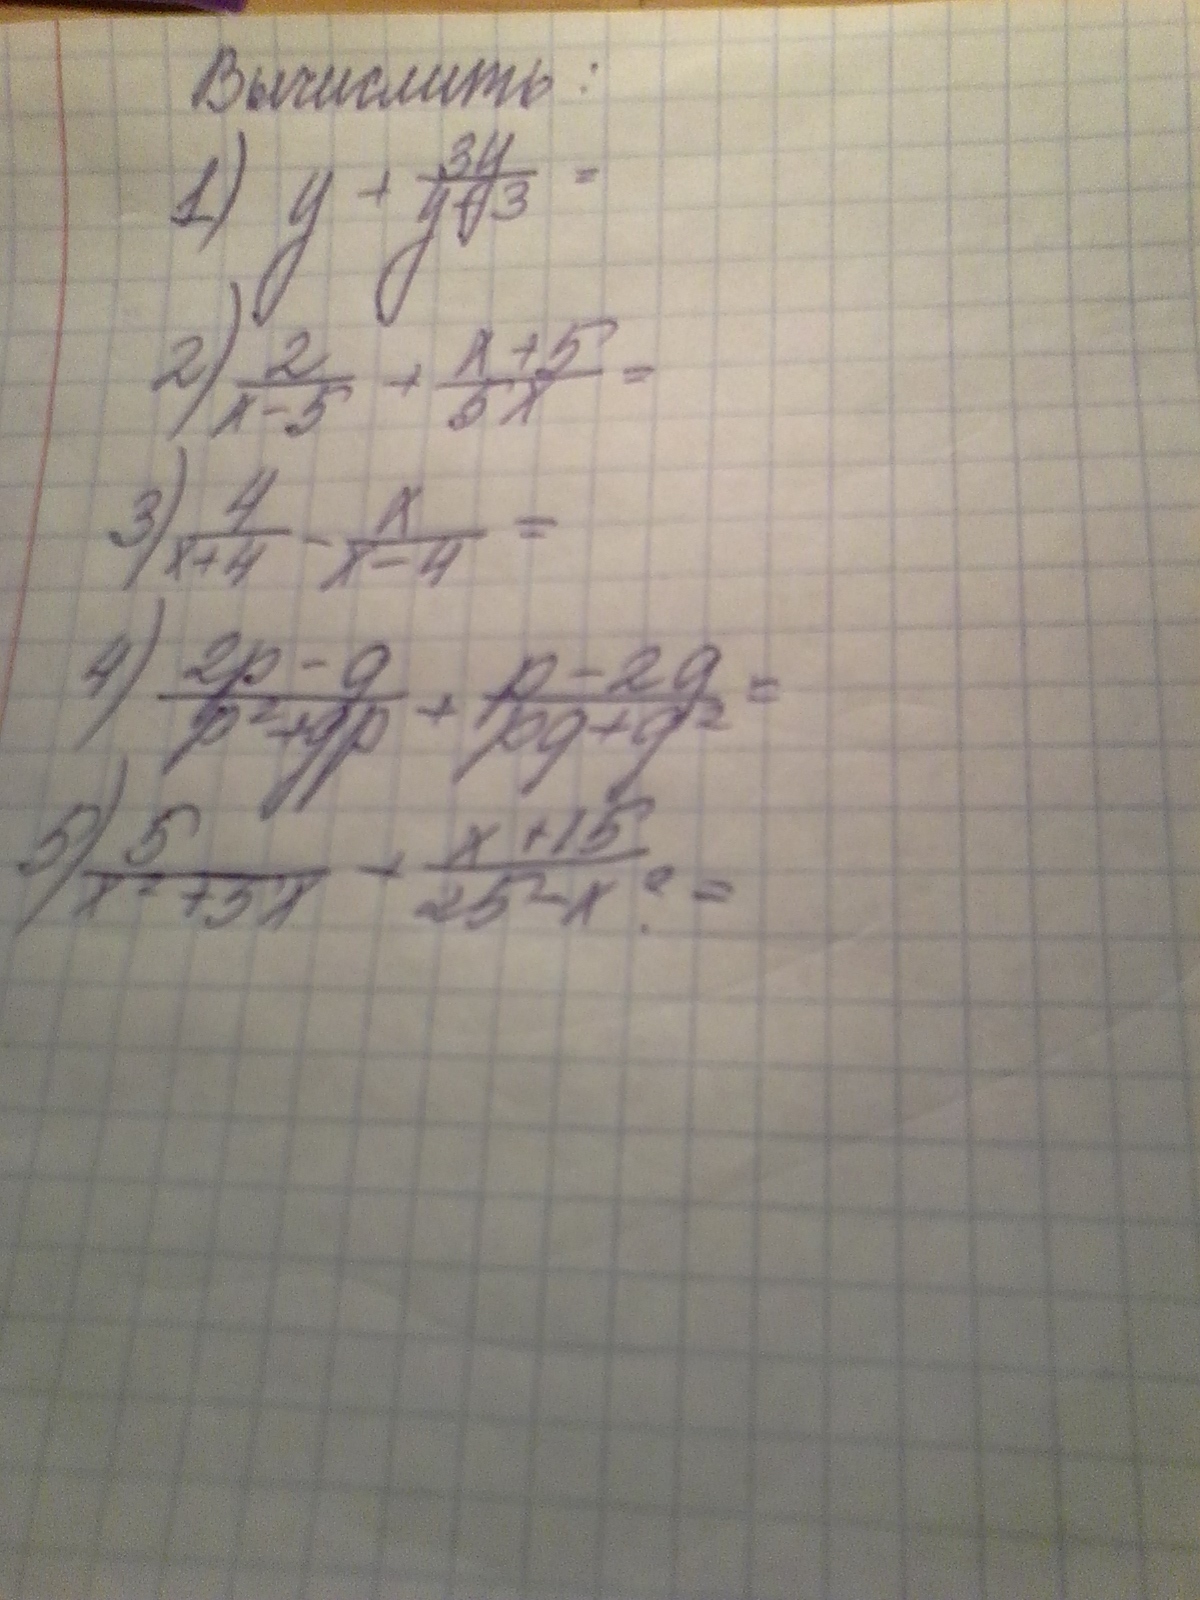 Вычислить:
1) y + 3y/(y+3) =
2) 2/(x-5) + (x+5)/(5x) =
3) 4/(x+4) - x/(x-4) =
4) (2p-q)/(p²+qp) + (p-2q)/(pq+q²) =
5) 5/(x²+5x) + (x+15)/(25²-x²) =